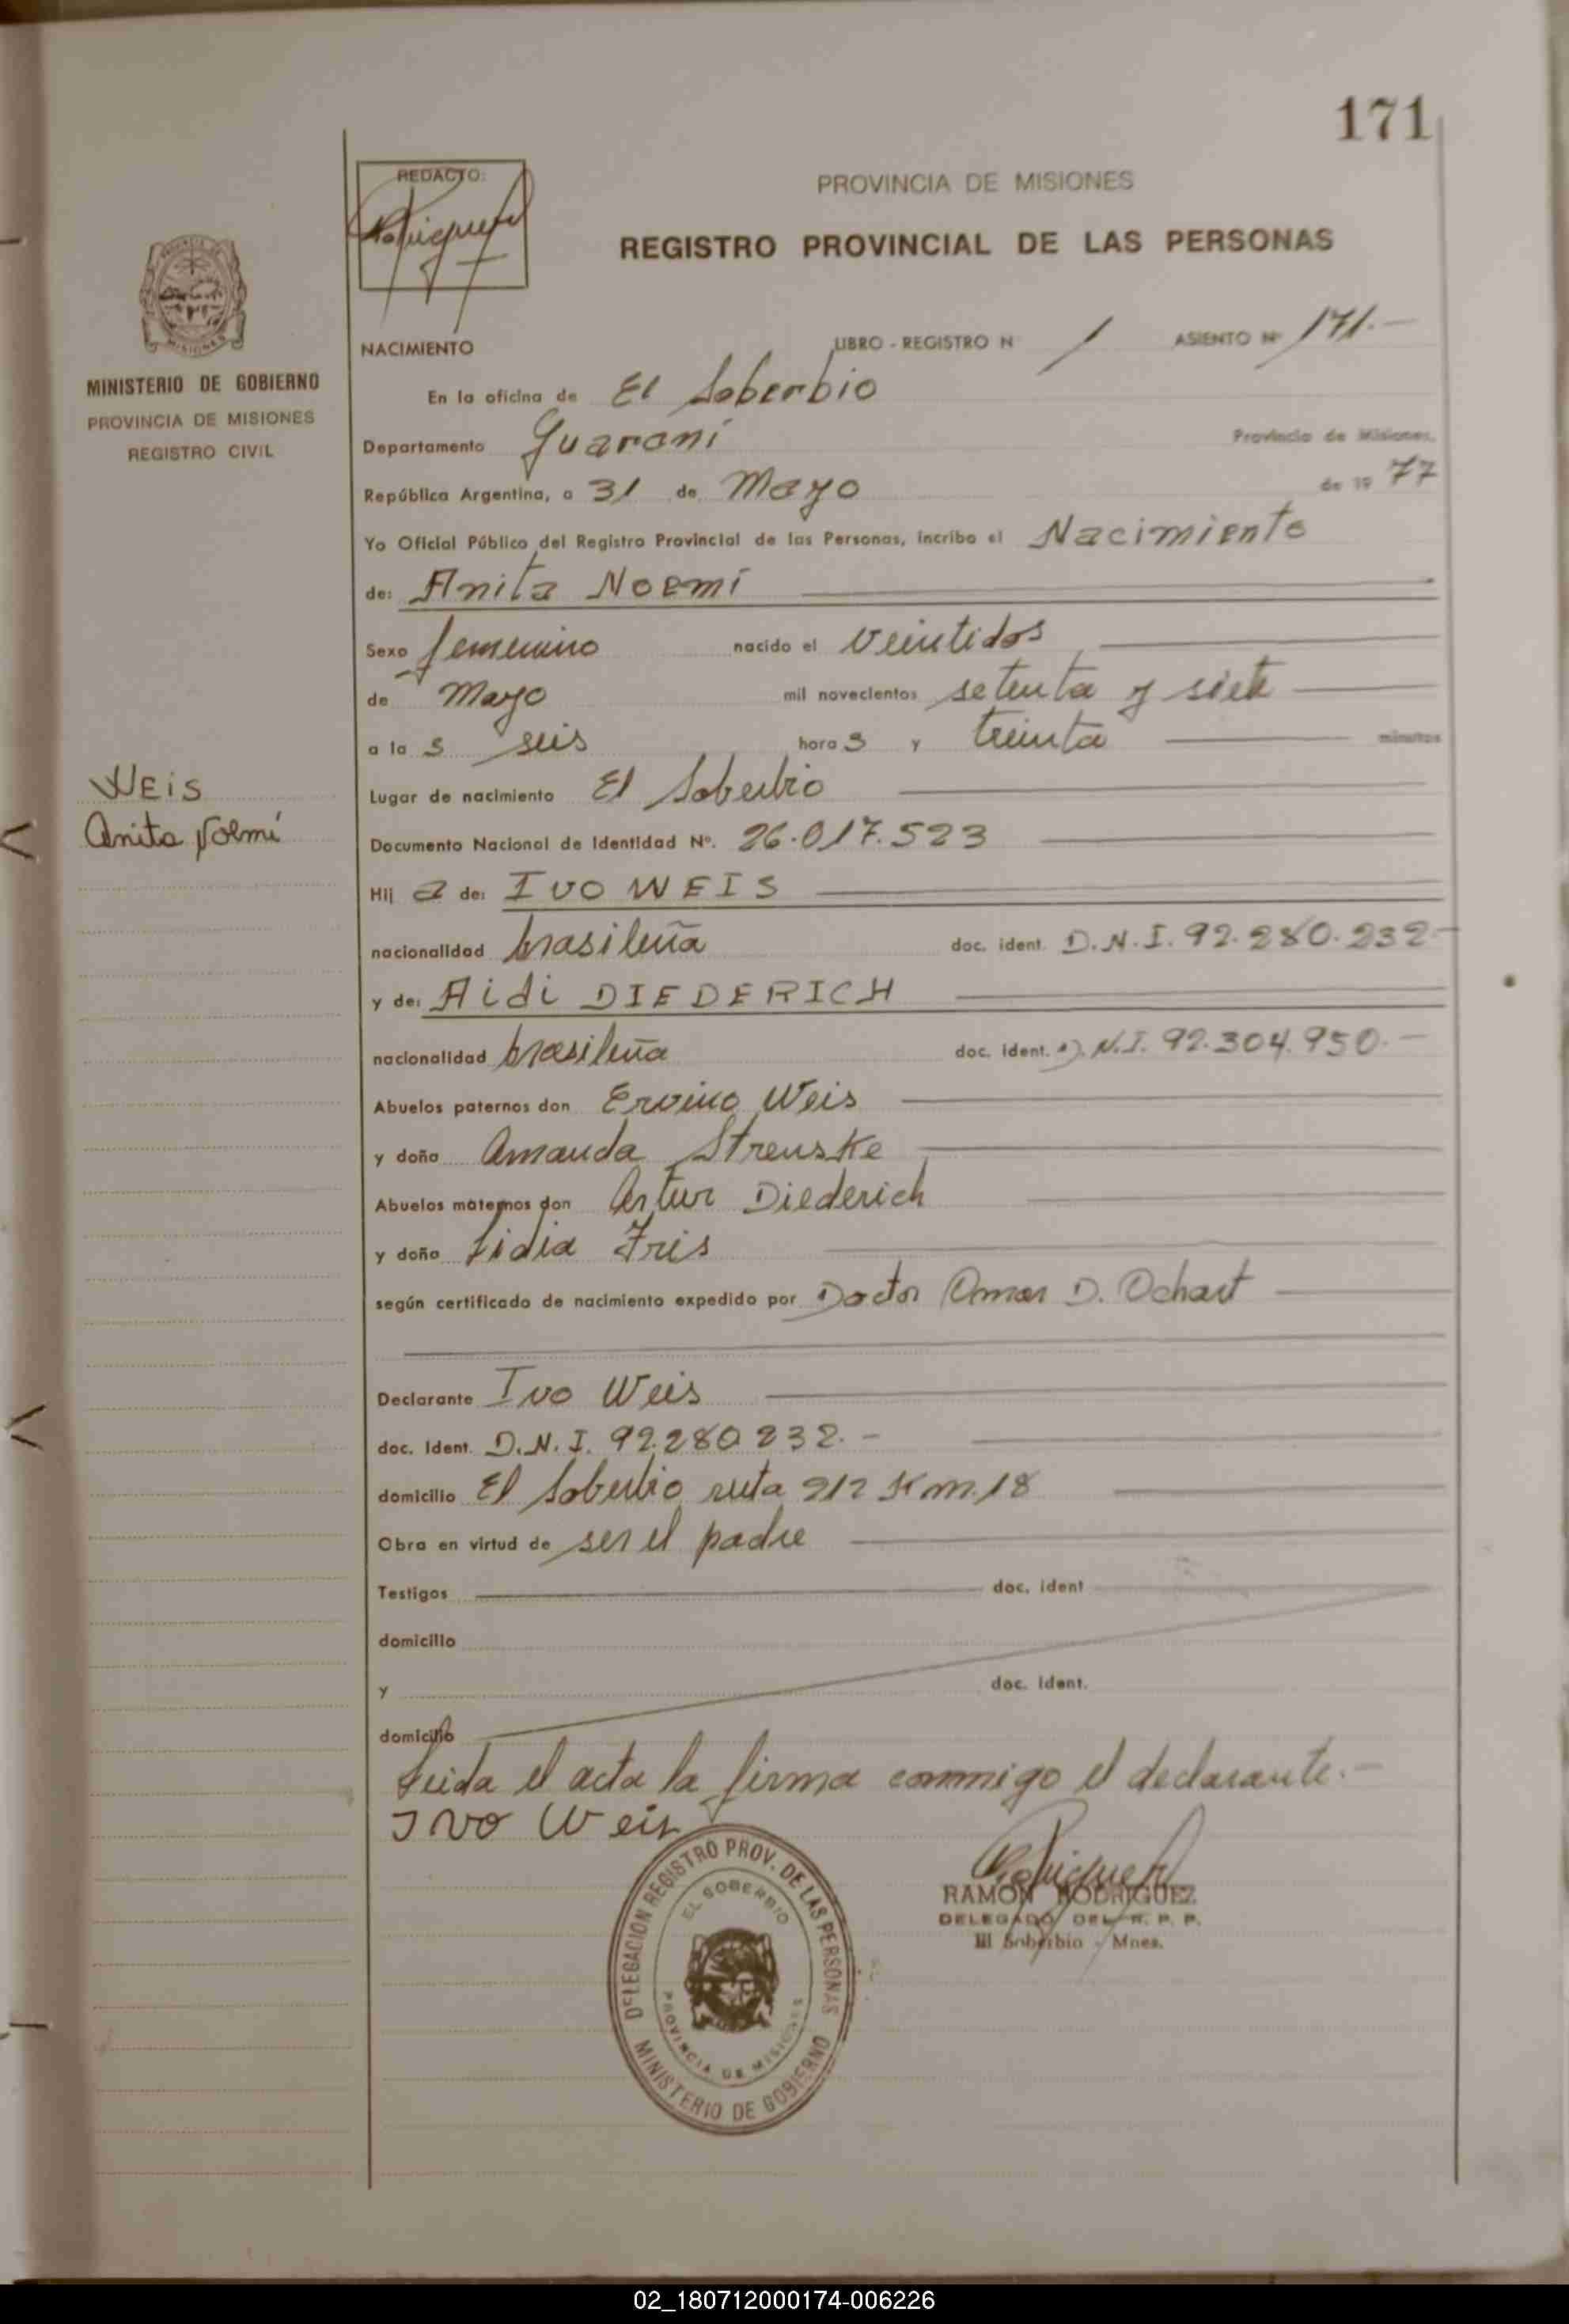 171
REDACTO:
PROVINCIA DE MISIONES
REGISTRO PROVINCIAL DE LAS PERSONAS
MISIONES
MINISTERIO DE GOBIERNO
PROVINCIA DE MISIONES
REGISTRO CIVIL
NACIMIENTO LIBRO - REGISTRO N 1 ASIENTO Nº 171.-
En la oficina de El Soberbio
Departamento Guaraní Provincia de Misiones,
República Argentina, a 31 de Mayo de 19 77
Yo Oficial Público del Registro Provincial de las Personas, incribo el Nacimiento
de: Anita Noemí
Sexo femenino nacido el veintidos
de Mayo mil novecientos setenta y siete
a la s seis hora s y treinta minutos
WEIS
Anita Noemí
Lugar de nacimiento El Soberbio
Documento Nacional de Identidad Nº. 26.017.523
Hij a de: IVO WEIS
nacionalidad brasileña doc. ident. D.N.I. 92.280.232-
y de: Aidi DIEDERICH
nacionalidad brasileña doc. ident. D.N.I. 92.304.950.-
Abuelos paternos don Ervino Weis
y doña Amanda Strenske
Abuelos maternos don Artur Diederich
y doña Lidia Fris
según certificado de nacimiento expedido por Doctor Omar D. Ochart
Declarante Ivo Weis
doc. Ident. D.N.I. 92.280.232.-
domicilio El Soberbio ruta 212 Km.18
Obra en virtud de ser el padre
Testigos doc. ident
domicilio
y doc. Ident.
domicilio
Leida el acta la firma conmigo el declarante.-
Ivo Weis
DELEGACION REGISTRO PROV. DE LAS PERSONAS
EL SOBERBIO
PROVINCIA DE MISIONES
MINISTERIO DE GOBIERNO
RAMON RODRIGUEZ
DELEGADO DEL R. P. P.
El Soberbio - Mnes.
02_180712000174-006226